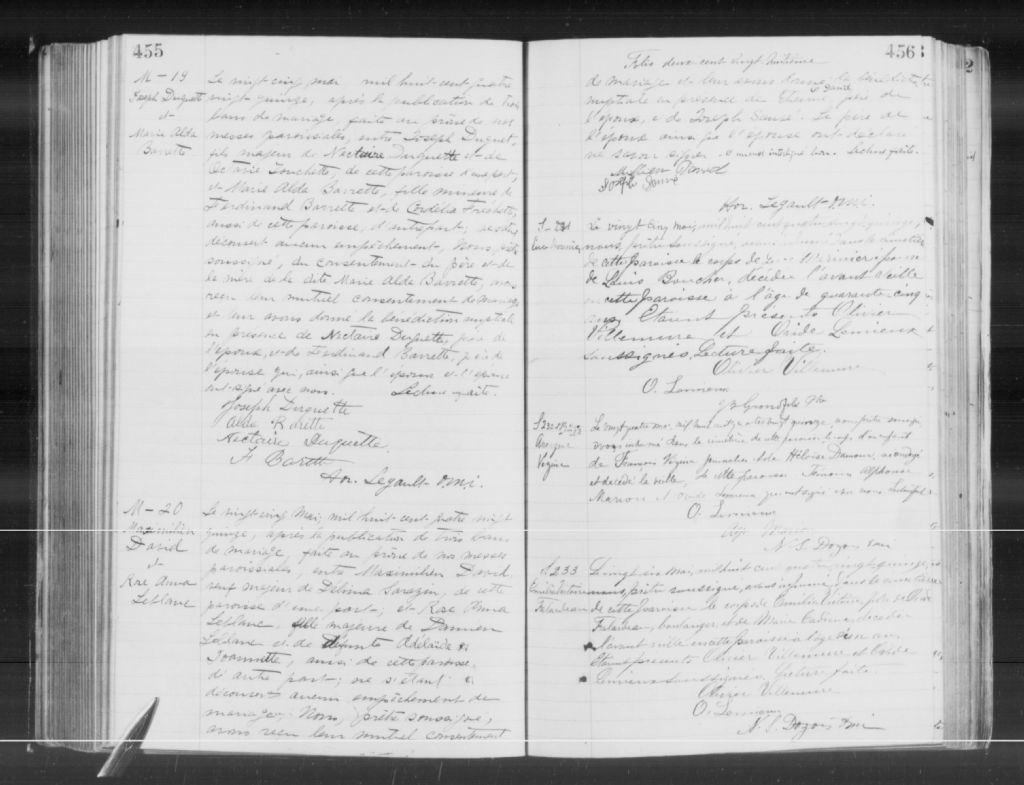 455
M - 19
Joseph Duquette
et
Marie Alda
Barrette
Le vingt cinq mai mil huit cent quatre
vingt quinze, après la publication de trois
bans de mariage, faite au prône de nos
messes paroissiales, entre Joseph Duquet,
fils majeur de Nectaire Duquette et de
Octavie Touchette, de cette paroisse d'une part,
et Marie Alda Barrette, fille mineure de
Ferdinand Barrette et de Cordélia Fréchette,
aussi de cette paroisse, d'autre part;
découvert aucun empêchement, Nous, prêtre
soussigné, du consentement du père et de
la mère de la dite Marie Alda Barrette, avons
reçu leur mutuel consentement de mariage
et leur avons donné la bénédiction nuptiale
en présence de Nectaire Duquette, père de
l'époux, et de Ferdinand Barrette, père de
l'épouse qui, ainsi que l'époux et l'épouse
ont signé avec nous. Lecture faite.
Joseph Duquette
Alda
Nectaire Duquette
F Barett
Hon. Legault O.M.I.
M - 20
Maximilien
David
et
Rose Anna
Leblanc
Le vingt cinq Mai, mil huit cent quatre vingt
quinze, après la publication de trois bans
de mariage, faite au prône de nos messes
paroissiales, entre Maximilien David
veuf majeur de Délima Sarazin, de cette
paroisse d'une part; et Rose Anna
Leblanc, fille majeure de Damien
Leblanc et de défunte Adélaïde
Joannette, aussi de cette paroisse,
d'autre part; ne s'étant
découvert aucun empêchement de
mariage, Nous, prêtre soussigné,
avons reçu leur mutuel consentement
456
Folio deux cent vingt huitième
de mariage et leur avons donné la bénédiction
nuptiale en présence de David père de
l'époux, et de Joseph Sauvé. Le père de
l'époux ainsi que l'épouse ont déclaré
ne savoir signer. Lecture faite.
Joseph Sauvé
Hon. Legault O.M.I.
S - 231
Le vingt cinq mai, mil huit cent quatre vingt quinze,
nous, prêtre soussigné, avons inhumé dans le cimetière
de cette paroisse le corps de
de Louis Boucher, décédée l'avant veille
en cette paroisse à l'âge de quarante-cinq
ans. Etaient présents Olivier
Villemure et Ovide Lemieux
soussignés, Lecture faite.
Olivier Villemure
O. Lemieux
S 232
Vezina
Le vingt quatre mai, mil huit cent quatre vingt quinze, nous prêtre soussigné,
avons inhumé dans le cimetière de cette paroisse le corps d'un enfant
de François Vezina journalier et de Héloïse Damour,
et décédé la veille, de cette paroisse Témoins Alphonse
et Ovide Lemieux
O. Lemieux
N. S. Dozois O.M.I.
S 233
Falardeau
Le vingt six Mai, mil huit cent quatre vingt quinze,
nous prêtre soussigné, avons inhumé dans le cimetière
de cette paroisse le corps de Emilie Victoire fille de
Falardeau, boulanger, et de Marie décédée
l'avant veille en cette paroisse à l'âge d'un an,
Etaient présents Olivier Villemure et Ovide
Lemieux soussignés. Lecture faite.
Olivier Villemure
O. Lemieux
N. S. Dozois O.M.I.